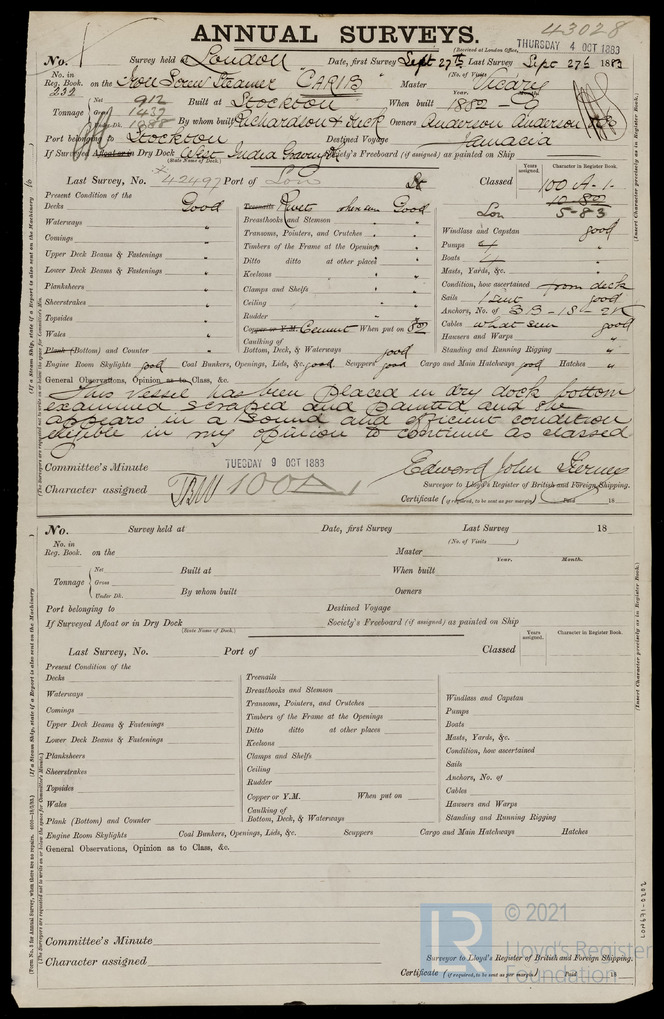 43028
ANNUAL SURVEYS.
(Received at London Office, THURSDAY 4 OCT 1883
No. Survey held at London Date, first Survey Sept 27th Last Survey Sept 27th 1883
(No. of Visits)
No. in Reg. Book. 232 on the Iron Screw Steamer "CARIB" Master
Tonnage Net 912 Built at Stockton When built 1882 Year. Month.
Gross 1437
Under Dk. 1388 By whom built Richardson & Duck Owners Anderson Anderson & Co
Port belonging to Stockton Destined Voyage Jamacia
If Surveyed Afloat or in Dry Dock West India Society's Freeboard (if assigned) as painted on Ship
(State Name of Dock.)
Last Survey, No. 42497 Port of Lon Classed Years assigned. Character in Register Book.
100 A.1.
Lon 5-83
Present Condition of the
Decks Good
Waterways "
Comings "
Upper Deck Beams & Fastenings "
Lower Deck Beams & Fastenings "
Planksheers "
Sheerstrakes "
Topsides "
Wales "
Plank (Bottom) and Counter "
Treenails Rivets when seen Good
Breasthooks and Stemson " "
Transoms, Pointers, and Crutches " "
Timbers of the Frame at the Openings "
Ditto ditto at other places " "
Keelsons " "
Clamps and Shelfs " "
Ceiling "
Rudder "
Copper or Y.M. Cement When put on
Caulking of
Bottom, Deck, & Waterways good
Windlass and Capstan good
Pumps 4 "
Boats 4 "
Masts, Yards, &c. "
Condition, how ascertained from deck
Sails 1 suit good
Anchors, No. of 3B-1S-2K
Cables what seen good
Hawsers and Warps "
Standing and Running Rigging "
Engine Room Skylights good Coal Bunkers, Openings, Lids, &c. good Scuppers good Cargo and Main Hatchways good Hatches "
General Observations, Opinion as to Class, &c.
This vessel has been placed in dry dock bottom
examined scraped and painted and she
appears in a sound and efficient condition
eligible in my opinion to continue as classed
Committee's Minute TUESDAY 9 OCT 1883
Character assigned 100A1
Edward John
Surveyor to Lloyd's Register of British and Foreign Shipping.
Certificate (if required, to be sent as per margin) Paid 18
No. Survey held at Date, first Survey Last Survey 18
(No. of Visits )
No. in Reg. Book. on the Master
Year. Month.
Tonnage Net Built at When built
Gross
Under Dk. By whom built Owners
Port belonging to Destined Voyage
If Surveyed Afloat or in Dry Dock Society's Freeboard (if assigned) as painted on Ship
(State Name of Dock.)
Last Survey, No. Port of Classed Years assigned. Character in Register Book.
Present Condition of the
Decks
Waterways
Comings
Upper Deck Beams & Fastenings
Lower Deck Beams & Fastenings
Planksheers
Sheerstrakes
Topsides
Wales
Plank (Bottom) and Counter
Treenails
Breasthooks and Stemson
Transoms, Pointers, and Crutches
Timbers of the Frame at the Openings
Ditto ditto at other places
Keelsons
Clamps and Shelfs
Ceiling
Rudder
Copper or Y.M. When put on
Caulking of
Bottom, Deck, & Waterways
Windlass and Capstan
Pumps
Boats
Masts, Yards, &c.
Condition, how ascertained
Sails
Anchors, No. of
Cables
Hawsers and Warps
Standing and Running Rigging
Engine Room Skylights Coal Bunkers, Openings, Lids, &c. Scuppers Cargo and Main Hatchways Hatches
General Observations, Opinion as to Class, &c.
Committee's Minute
Character assigned
Surveyor to Lloyd's Register of British and Foreign Shipping.
Certificate (if required, to be sent as per margin) Paid 18
(If a Steam Ship, state if a Report is also sent on the Machinery
(The Surveyors are requested not to write on or below the space for Committee's Minute.)
(Insert Character precisely as in Register Book.)
(If a Steam Ship, state if a Report is also sent on the Machinery
(The Surveyors are requested not to write on or below the space for Committee's Minute.)
(Insert Character precisely as in Register Book.)
LON671-0202
LR
© 2021
Lloyd's Register
Foundation